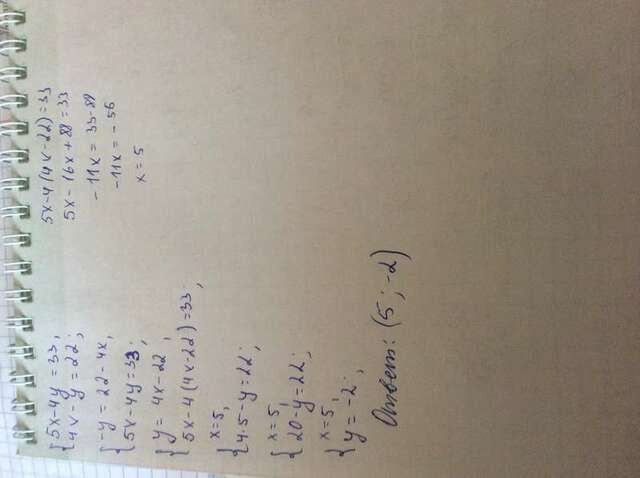 {5x-4y=33,
4x-y=22;
{-y=22-4x,
5x-4y=33;
{y=4x-22,
5x-4(4x-22)=33;
{x=5,
4·5-y=22;
{x=5,
20-y=22;
{x=5,
y=-2;
Ответ: (5;-2)
5x-4(4x-22)=33
5x-16x+88=33
-11x=33-88
-11x=-56
x=5